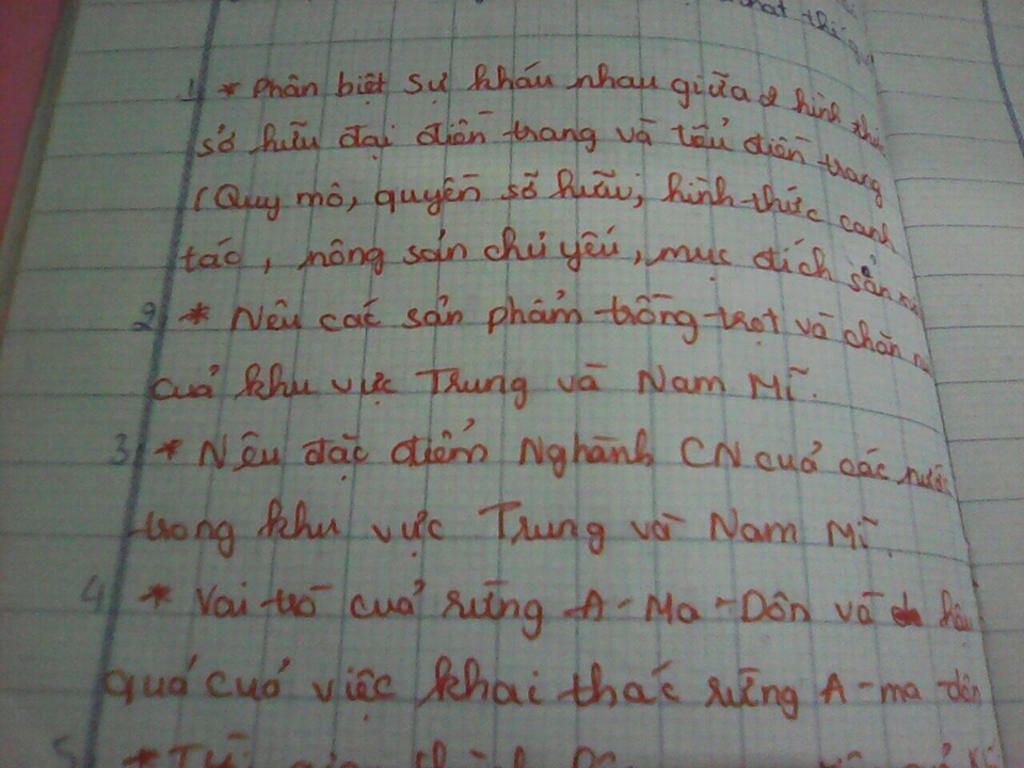 1 * Phân biệt sự kháu nhau giữa 2 hình
sở hữu đại điền trang và tểu điền trang
(Quy mô, quyền sở hữu, hình thức canh
tác, nông sản chủ yếu, mục đích sản
2 * Nêu các sản phẩm trồng trọt và chăn
cuả khu vực Trung và Nam Mĩ.
3 * Nêu đặc điểm Nghành CN cuả các nước
trong khu vực Trung và Nam Mĩ.
4 * Vai trò cuả rừng A-Ma-Dôn và hậu
quả cuả việc khai thác rừng A-ma-dôn
5 *